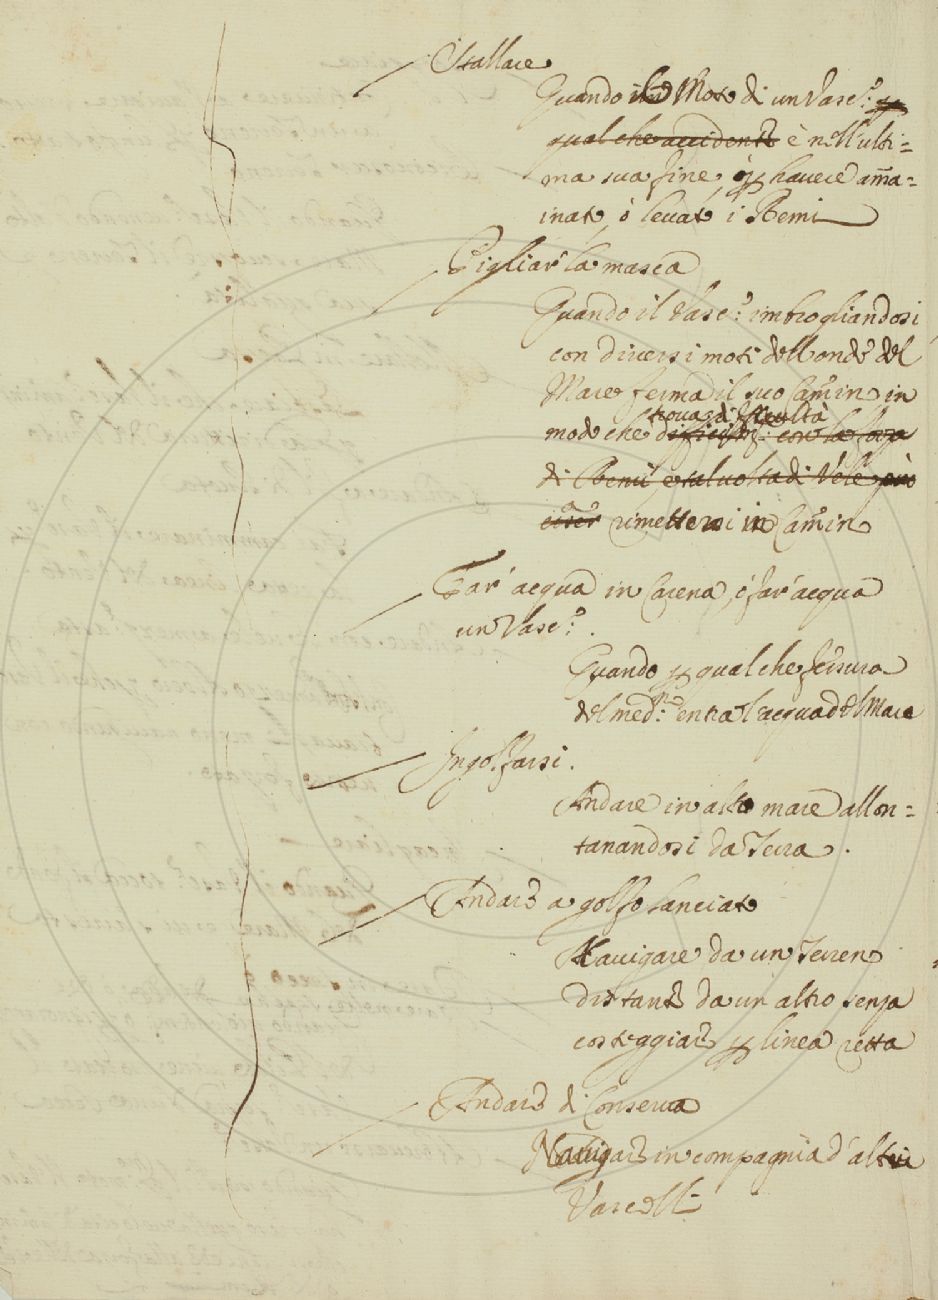 Stallare
Quando il Moto di un Vasc.º p
qualche accidente è nell'ulti=
ma sua fine, ò p havere am̃a=
inato, ò levato i Remi
Pigliar la masca
Quando il Vasc.º imbrogliandosi
con diversi moti dell'onde del
Mare ferma il suo Cam̃in in
trova difficultà
modo che con la forza
di Remi, e tal volta di Vele può
esser rimettersi in Cam̃in
Far' acqua in Carena, ò far' acqua
un Vasc.º.
Quando p qualche fessura
del med.mº entra l'acqua del Mare
Ingolfarsi.
Andare in alto mare allon=
tanandosi da Terra.
Andare a golfo lanciato
Navigare da un Terreno
distante da un altro senza
costeggiare p linea retta
Andare di Conserva
Navigare in compagnia d'altri
Vascelli